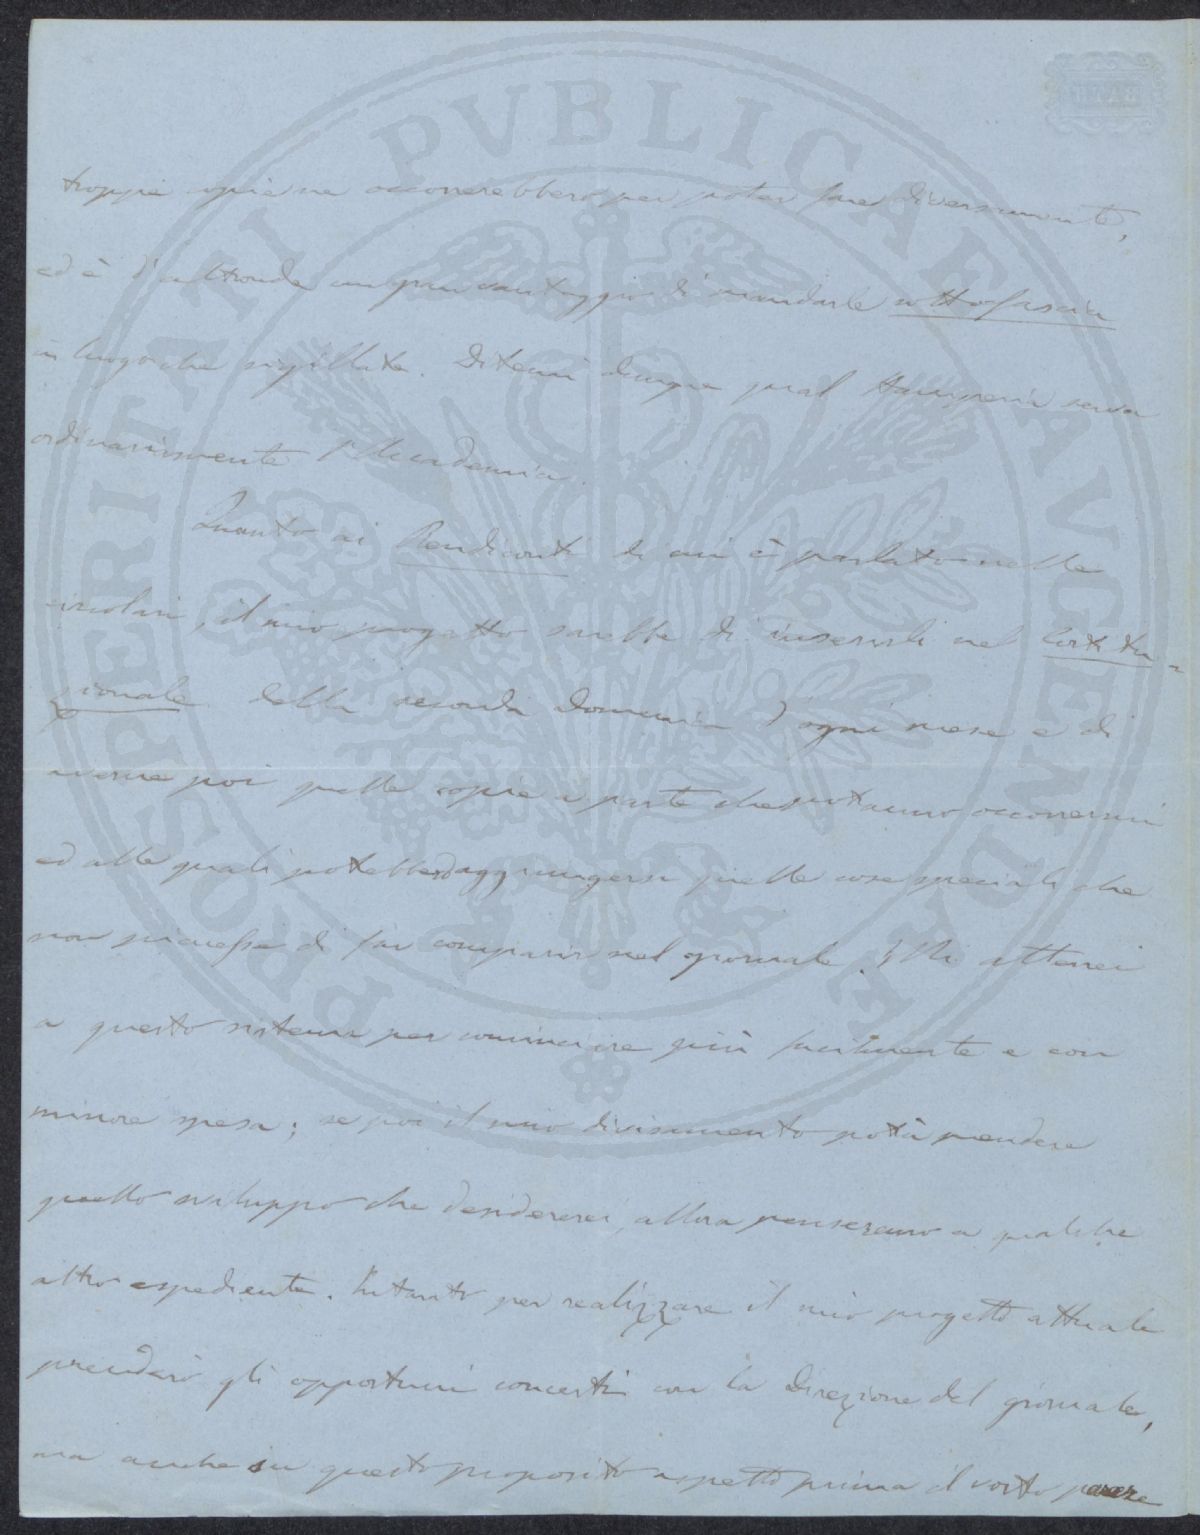 PROSPERITATI PVBLICAE AVGENDAE
BATH
troppe copie ne occorrerebbero per poter fare diversamente,
ed è d'altronde un gran vantaggio di mandarle sottofascia
in luogo che sigillate. Ditemi dunque qual stamperia serva
ordinariamente l'Accademia.
Quanto ai Rendiconti di cui è parlato nelle
circolari, il mio progetto sarebbe di inserirli nel Costitu-
zionale della seconda domenica d'ogni mese e di
averne poi quelle copie a parte che potranno occorrermi
ed alle quali potrebbero aggiungersi quelle cose speciali che
non piacesse di far comparir nel giornale. Mi atterrei
a questo sistema per cominciare più facilmente e con
minore spesa; se poi il mio divisamento potrà prendere
quello sviluppo che desidererei, allora penseremo a qualche
altro espediente. Intanto per realizzare il mio progetto attuale
prenderò gli opportuni concerti con la Direzione del giornale,
ma anche su questo proposito aspetto prima il vostro parere